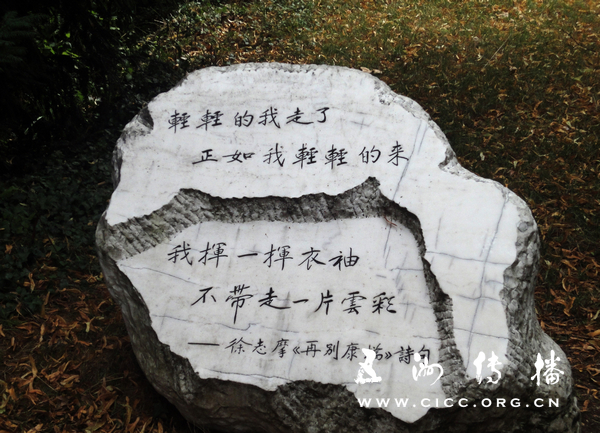 輕輕的我走了
正如我輕輕的来
我揮一揮衣袖
不帶走一片雲彩
——徐志摩《再别康桥》詩句
五洲传播
WWW.CICC.ORG.CN